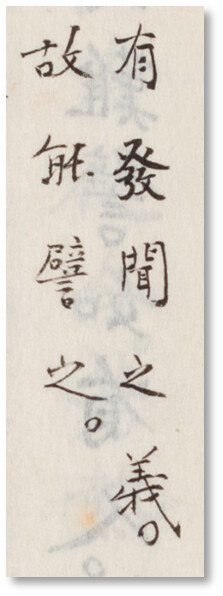 有發聞之義。
故能譬之。